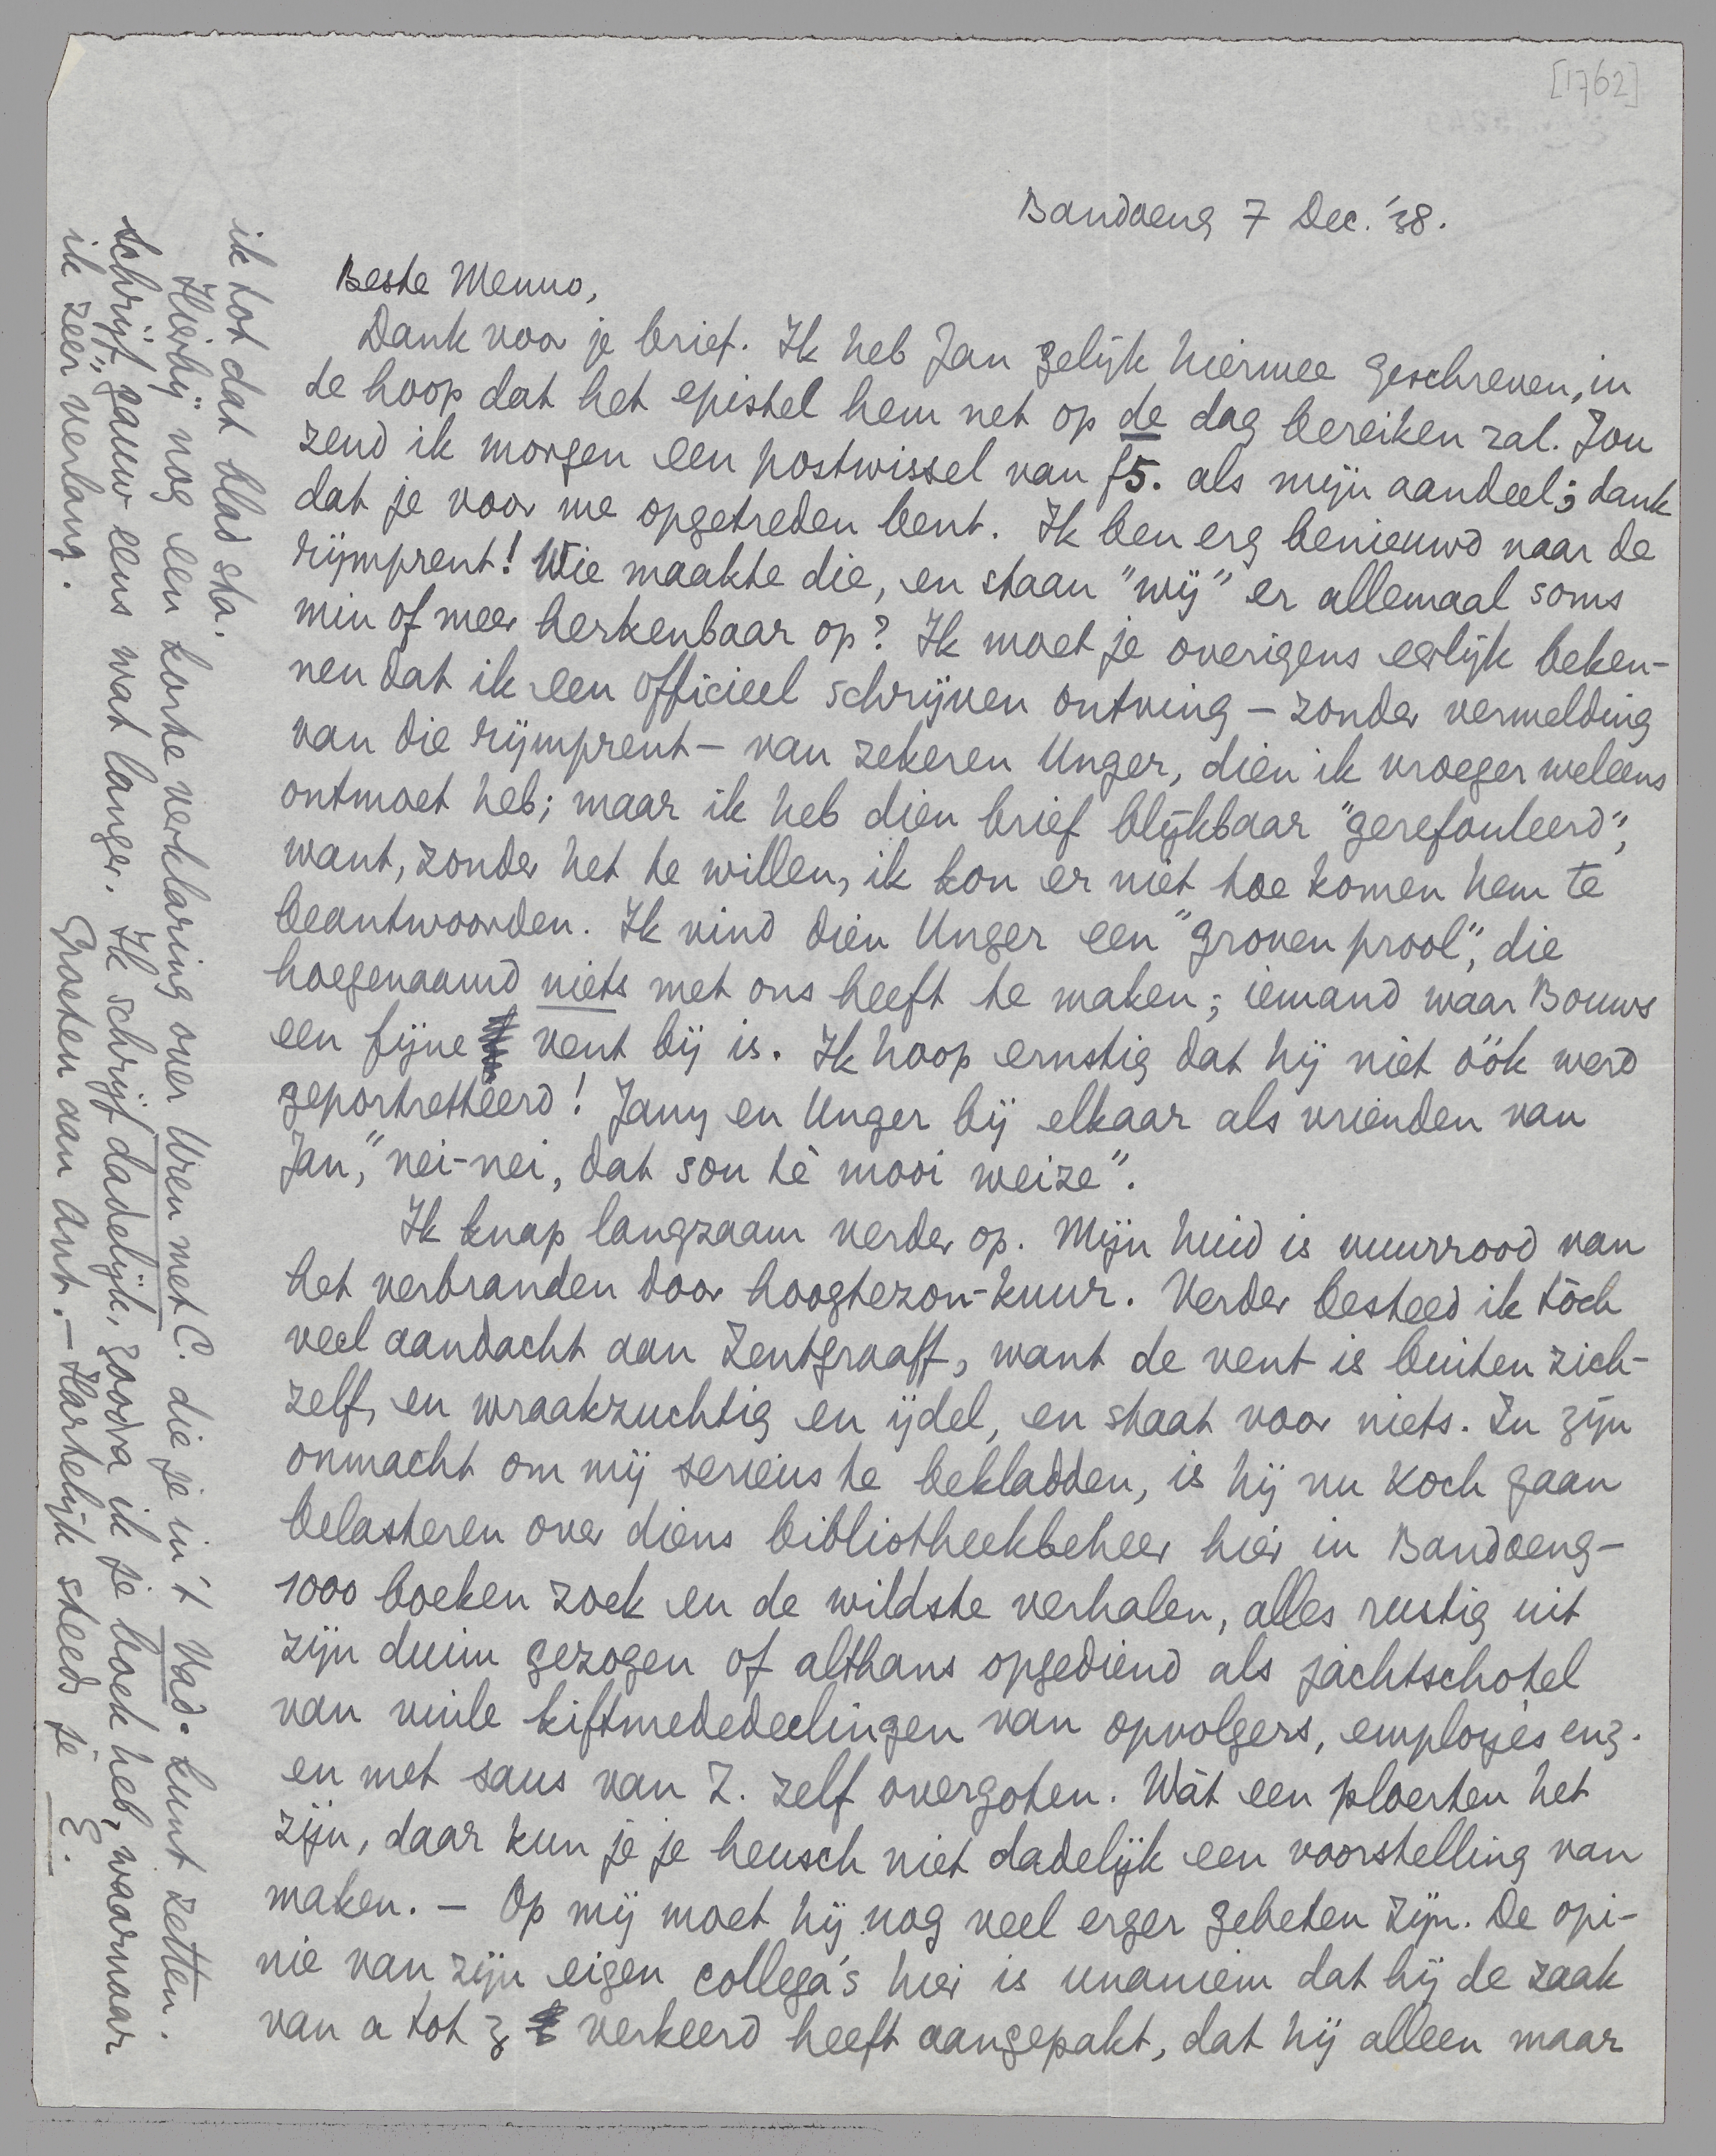 [1762]
Bandoeng 7 Dec. '38.
Beste Menno,
Dank voor je brief. Ik heb Jan gelijk hiermee geschreven, in
de hoop dat het epistel hem net op de dag bereiken zal. Jou
zend ik morgen een postwissel van f5. als mijn aandeel; dank
dat je voor me opgetreden bent. Ik ben erg benieuwd naar de
rijmprent! Wie maakte die, en staan "wij" er allemaal soms
min of meer herkenbaar op? Ik moet je overigens eerlijk beken-
nen dat ik een officieel schrijven ontving - zonder vermelding
van die rijmprent - van zekeren Unger, dien ik vroeger weleens
ontmoet heb; maar ik heb dien brief blijkbaar "gerefouleerd",
want, zonder het te willen, ik kon er niet toe komen hem te
beantwoorden. Ik vind dien Unger een "groven prool", die
hoegenaamd niets met ons heeft te maken; iemand waar Bouws
een fijne vent bij is. Ik hoop ernstig dat hij niet óók werd
geportretteerd! Jany en Unger bij elkaar als vrienden van
Jan, "nei-nei, dat sou té mooi weize".
Ik knap langzaam verder op. Mijn huid is vuurrood van
het verbranden door hoogtezon-kuur. Verder besteed ik tòch
veel aandacht aan Zentgraaff, want de vent is buiten zich-
zelf, en wraakzuchtig en ijdel, en staat voor niets. In zijn
onmacht om mij serieus te bekladden, is hij nu Koch gaan
belasteren over diens bibliotheekbeheer hier in Bandoeng -
1000 boeken zoek en de wildste verhalen, alles rustig uit
zijn duim gezogen of althans opgediend als jachtschotel
van vuile kiftmededeelingen van opvolgers, employés enz.
en met saus van Z. zelf overgoten. Wàt een ploerten het
zijn, daar kun je je heusch niet dadelijk een voorstelling van
maken. - Op mij moet hij nog veel erger gebeten zijn. De opi-
nie van zijn eigen collega's hier is unaniem dat hij de zaak
van a tot z verkeerd heeft aangepakt, dat hij alleen maar
ik tot dat blad sta.
Hierbij nog een korte verklaring over Uren met C. die je in 't Vad. kunt zetten.
Schrijf gauw eens wat langer. Ik schrijf dadelijk, zoodra ik je boek heb, waarnaar
ik zeer verlang.
Groeten aan Ant. - Hartelijk steeds je E.